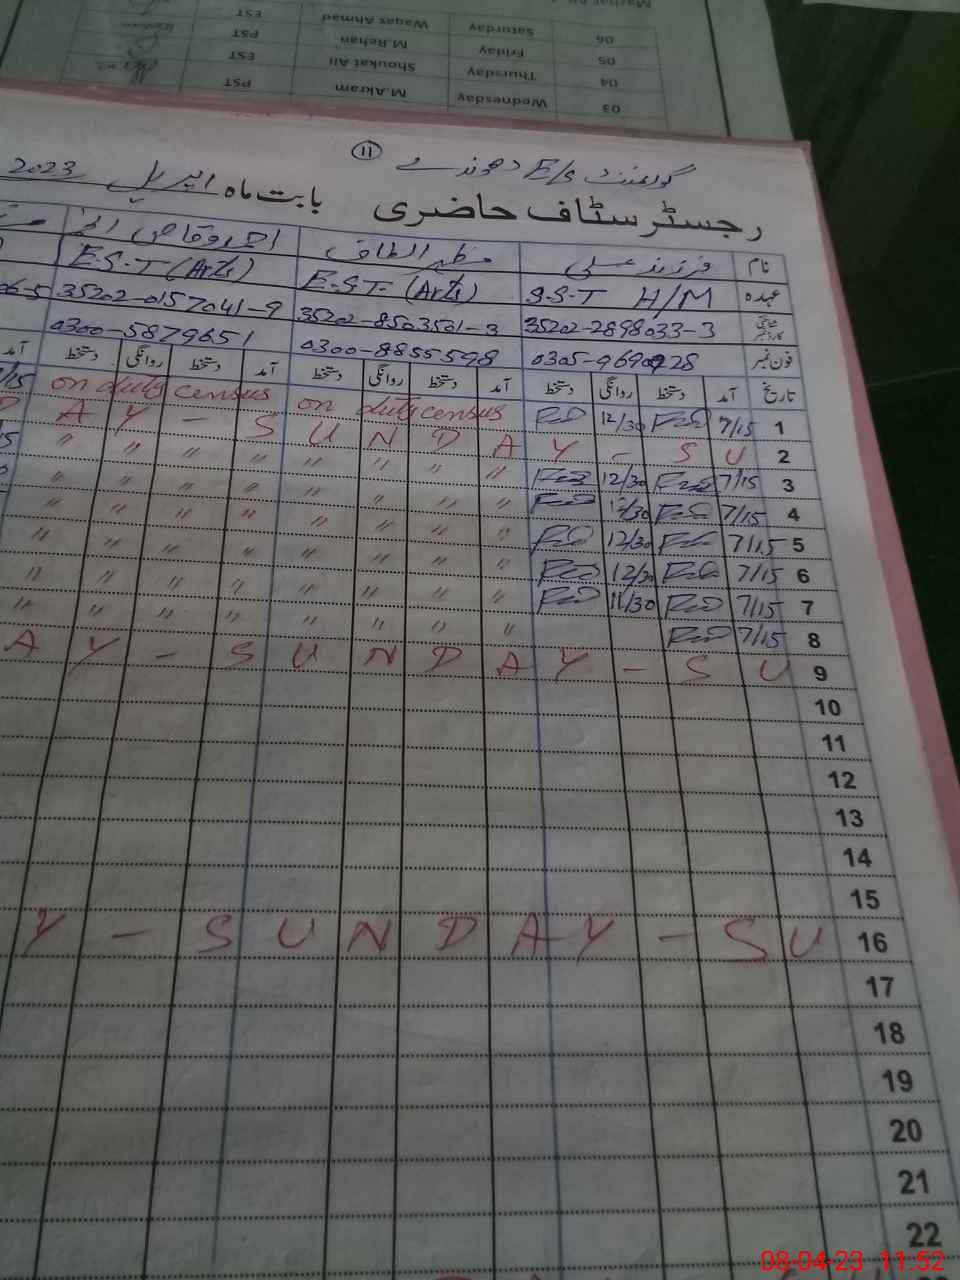 06 Saturday Waqas Ahmad EST
05 Friday M.Rehan PST
04 Thursday Shoukat Ali EST
03 Wednesday M.Akram PST
گورنمنٹ E/S
11
رجسٹر سٹاف حاضری بابت ماہ اپریل 2023
نام فرزند علی مظہر الطاف
عہدہ S.S.T H/M E.S.T (Arts) E.S.T (Arts)
شناختی کارڈ نمبر 35202-2898033-3 35202-8503501-3 35202-0157041-9
فون نمبر 0305-9690928 0300-8855598 0300-5879651
تاریخ آمد دستخط روانگی دستخط آمد دستخط روانگی دستخط آمد دستخط روانگی دستخط آمد
1 7/15 12/30 on duty census on duty census
2 SUNDAY - SUNDAY -
3 7/15 12/30 " " " " " " " "
4 7/15 12/30 " " " " " " " "
5 7/15 12/30 " " " " " " " "
6 7/15 12/30 " " " " " " " "
7 7/15 11/30 " " " " " " " "
8 7/15 " " " " " " " "
9 AY - SUNDAY - SU
10
11
12
13
14
15
16 Y - SUNDAY - SU
17
18
19
20
21
22
08-04-23 11:52